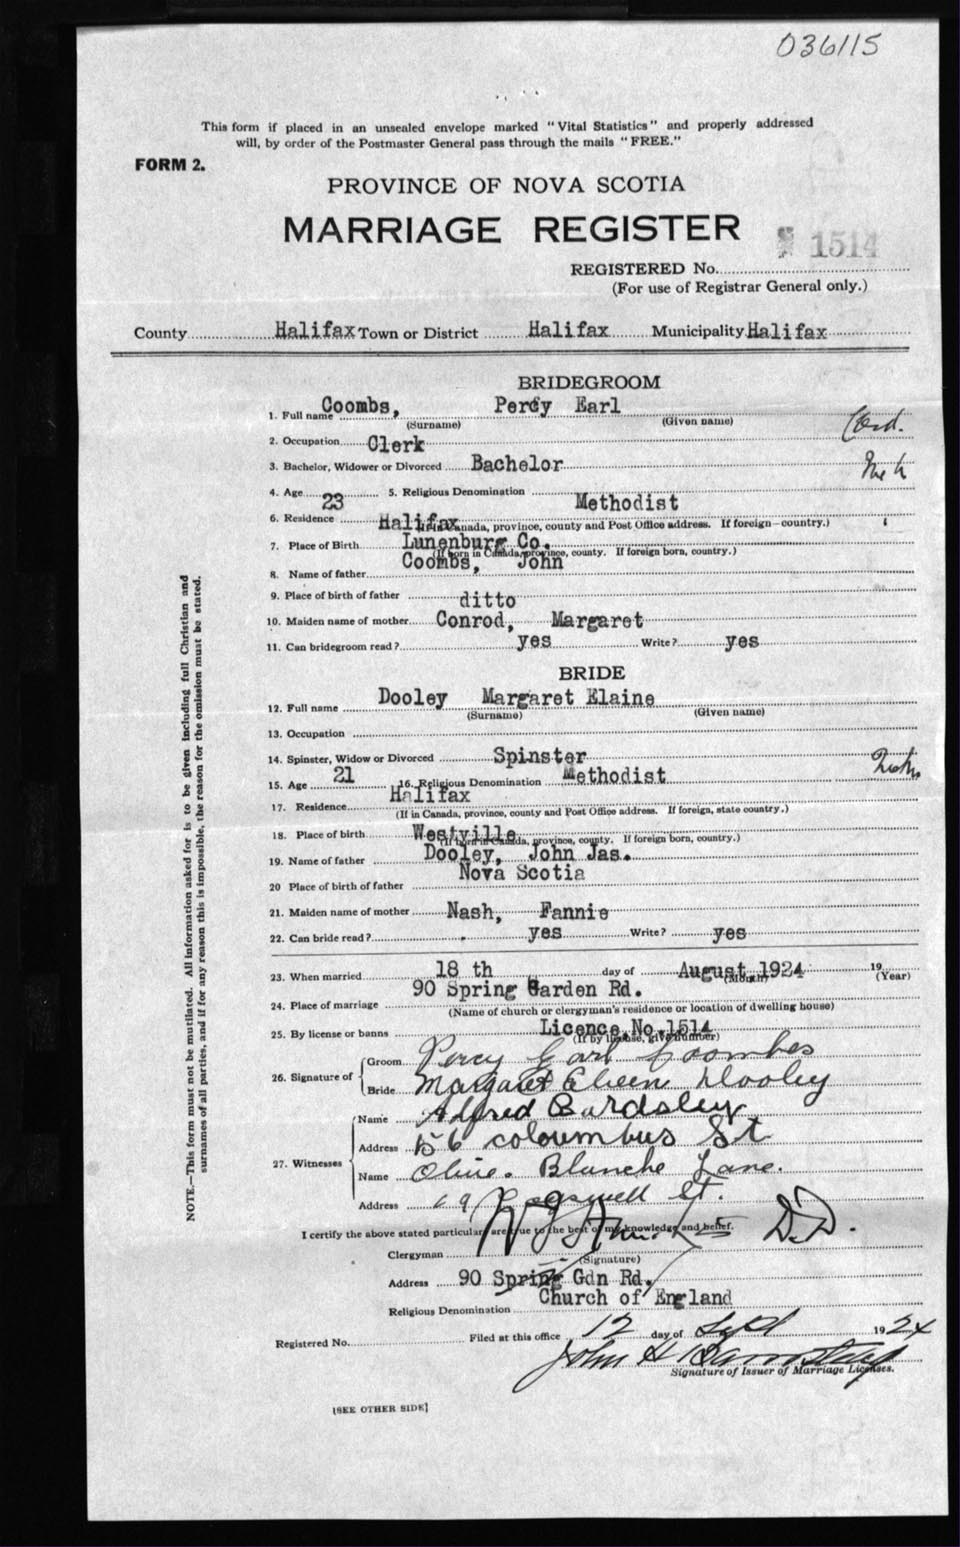 036115
This form if placed in an unsealed envelope marked "Vital Statistics" and properly addressed
will, by order of the Postmaster General pass through the mails "FREE."
FORM 2.
PROVINCE OF NOVA SCOTIA
MARRIAGE REGISTER
1514
REGISTERED No.
(For use of Registrar General only.)
County Halifax Town or District Halifax Municipality Halifax
BRIDEGROOM
1. Full name Coombs, Percy Earl
(Surname) (Given name)
2. Occupation Clerk
3. Bachelor, Widower or Divorced Bachelor
4. Age 23 5. Religious Denomination Methodist
6. Residence Halifax
(If in Canada, province, county and Post Office address. If foreign—country.)
7. Place of Birth Lunenburg Co.
(If born in Canada, province, county. If foreign born, country.)
8. Name of father Coombs, John
9. Place of birth of father ditto
10. Maiden name of mother Conrod, Margaret
11. Can bridegroom read? yes Write? yes
BRIDE
12. Full name Dooley Margaret Elaine
(Surname) (Given name)
13. Occupation
14. Spinster, Widow or Divorced Spinster
15. Age 21 16. Religious Denomination Methodist
17. Residence Halifax
(If in Canada, province, county and Post Office address. If foreign, state country.)
18. Place of birth Westville
(If born in Canada, province, county. If foreign born, country.)
19. Name of father Dooley, John Jas.
20 Place of birth of father Nova Scotia
21. Maiden name of mother Nash, Fannie
22. Can bride read? yes Write? yes
23. When married 18 th day of August 1924 19
(Month) (Year)
24. Place of marriage 90 Spring Garden Rd.
(Name of church or clergyman's residence or location of dwelling house)
25. By license or banns Licence No. 1514
(If by license, give number)
26. Signature of Groom Percy Earl Coombes
Bride Margaret Eileen Dooley
27. Witnesses Name Alfred Bardsley
Address 156 coloumbus St
Name Olive. Blanche Lane.
Address 69 Cogswell St.
I certify the above stated particulars are true to the best of my knowledge and belief.
Clergyman D.D.
(Signature)
Address 90 Spring Gdn Rd.
Religious Denomination Church of England
Registered No. Filed at this office 12 day of Sept 1924
John H Barnstead
Signature of Issuer of Marriage Licenses.
[SEE OTHER SIDE]
NOTE.—This form must not be mutilated. All information asked for is to be given including full Christian and
surnames of all parties, and if for any reason this is impossible, the reason for the omission must be stated.